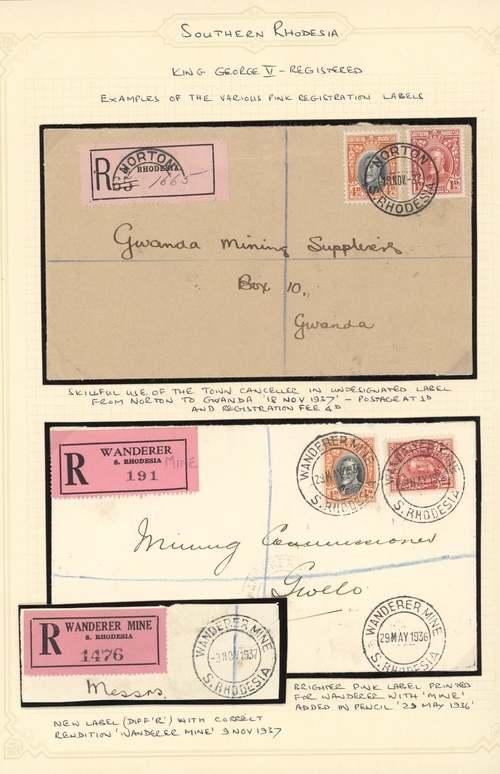 SOUTHERN RHODESIA
KING GEORGE V - REGISTERED
EXAMPLES OF THE VARIOUS PINK REGISTRATION LABELS
R
NORTON
RHODESIA.
1665
NORTON
18 NOV 37
S. RHODESIA
Gwanda Mining Suppliers
Box 10,
Gwanda
SKILLFUL USE OF THE TOWN CANCELLER IN UNDESIGNATED LABEL
FROM NORTON TO GWANDA '18 NOV 1937' - POSTAGE AT 1D
AND REGISTRATION FEE 4D
R
WANDERER
S. RHODESIA MINE
191
WANDERER MINE
29 MAY 1936
S. RHODESIA
WANDERER MINE
S. RHODESIA
Mining Commissioner
Gwelo.
WANDERER MINE
29 MAY 1936
S. RHODESIA
R
WANDERER MINE
S. RHODESIA
1476
WANDERER MINE
-9 NOV 1937
S. RHODESIA
Messrs.
BRIGHTER PINK LABEL PRINTED
FOR WANDERER WITH 'MINE'
ADDED IN PENCIL '29 MAY 1936'
NEW LABEL (DIFF'R) WITH CORRECT
RENDITION 'WANDERER MINE' 9 NOV 1937